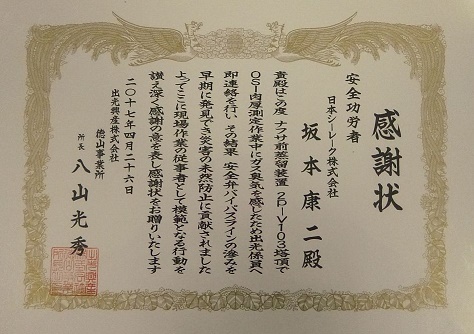 感謝状
安全功労者
日本シーレーク株式会社
坂本康二殿
貴殿はこの度 ナフサ前蒸留装置 2D-V103塔頂で
OSI肉厚測定作業中にガス臭気を感じたため出光係員へ
即連絡を行い その結果 安全弁バイパスラインの滲みを
早期に発見でき災害の未然防止に貢献されました
よってここに現場作業の従事者として模範となる行動を
讃え深く感謝の意を表し感謝状をお贈りいたします
二〇十七年四月二十六日
出光興産株式会社
徳山事業所
所長 八山光秀